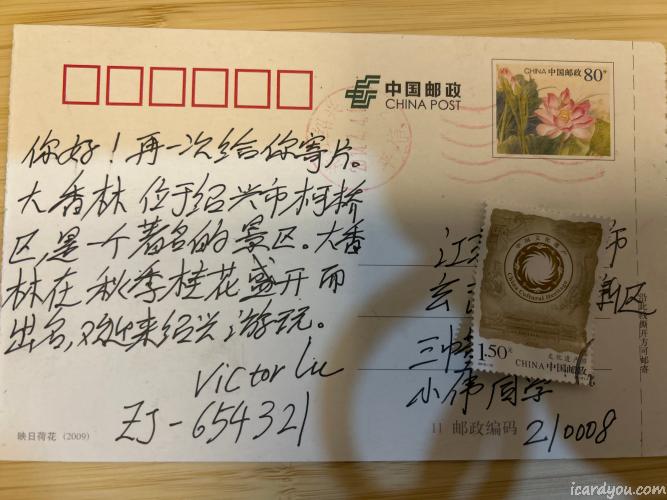 中国邮政
CHINA POST
CHINA 中国邮政 80分
你好！再一次给你寄片。
大香林位于绍兴市柯桥
区，是一个著名的景区。大香
林在秋季桂花盛开而
出名，欢迎来绍兴游玩。
Victor Lu
ZJ-654321
市
新区
小伟同学
China Cultural Heritage
1.50元
CHINA 中国邮政
映日荷花 (2009)
11 邮政编码
210008
icardyou.com